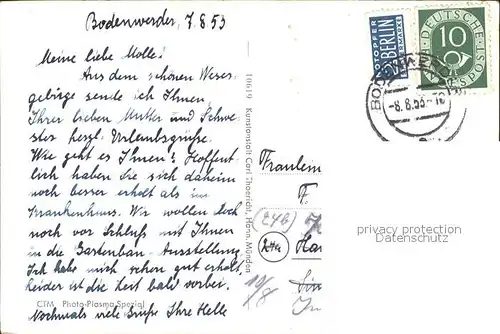 Bodenwerder, 7.8.53
Meine liebe Molle!
Aus dem schönen Weser-
gebirge sende ich Ihnen,
Ihrer lieben Mutter und Schwe-
ster herzl. Urlaubsgrüße.
Wie geht es Ihnen? Hoffent-
lich haben Sie sich daheim
noch besser erholt als im
Krankenhaus. Wir wollen doch
noch vor Schluß mit Ihnen
in die Gartenbau-Ausstellung.
Ich habe mich schon gut erholt,
leider ist die Zeit bald vorbei.
Nochmals viele Grüße Ihre Helle
CTM Photo-Plasma-Spezial
10619 Kunstanstalt Carl Thoericht, Hann. Münden
NOTOPFER
2 BERLIN
STEUERMARKE
DEUTSCHE POST
10
-8.8.53-
Fräulein
(24b)
24a
Ha
10/8
privacy protection
Datenschutz